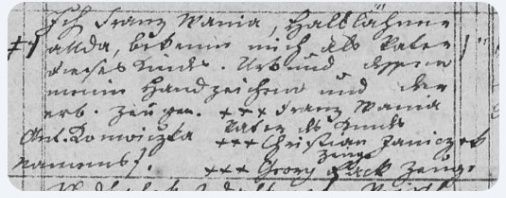 Ich Franz Wania, Halblähner
allda, bekenne mich als Vater
dieses Kindes. Urkund dessen
meine Handzeichen und der
erb. Zeugen. +++ Franz Wania
Vater des Kindes
Ant. +++ Christian Janiczek
Zeuge
namensf. +++ Georg Zeuge